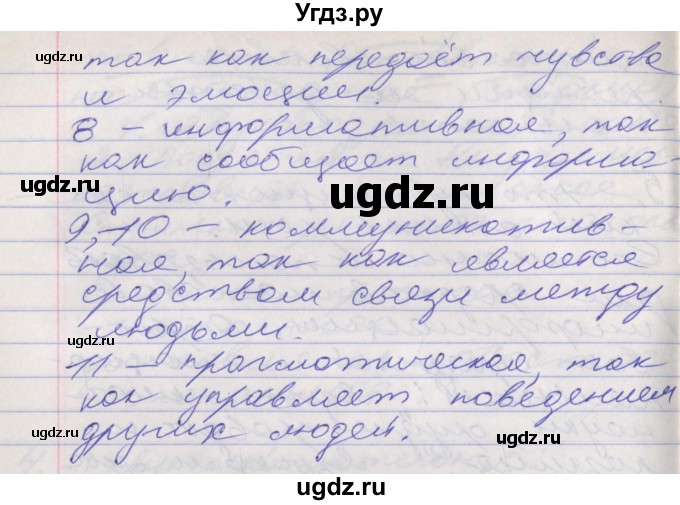 Угдз.ру
так как передаёт чувства
и эмоции.
8 – информативная, так
как сообщает информа-
цию.
9, 10 – коммуникатив-
ная, так как является
средством связи между
людьми.
11 – прагматическая, так
как управляет поведением
других людей.
ugdz.ru
ugdz.ru
ugdz.ru
ugdz.ru
ugdz.ru
ugdz.ru
ugdz.ru
ugdz.ru
ugdz.ru